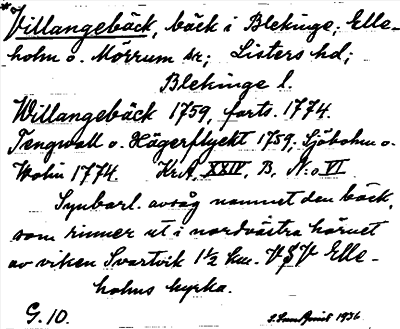 *Villangebäck, bäck i Blekinge, Elle-
holm o. Mörrum sr; Listers hd;
Blekinge l.
Willangebäck 1759, forts. 1774.
Tengwall o. Hägerflyckt 1759, Sjöbohm o.
Wolin 1774. Kr. A. XXIV, B, N:o VI
Synbarl. avsåg namnet den bäck,
som rinner ut i nordvästra hörnet
av viken Svartvik 1½ km. VSV Elle-
holms kyrka.
G. 10. 1936